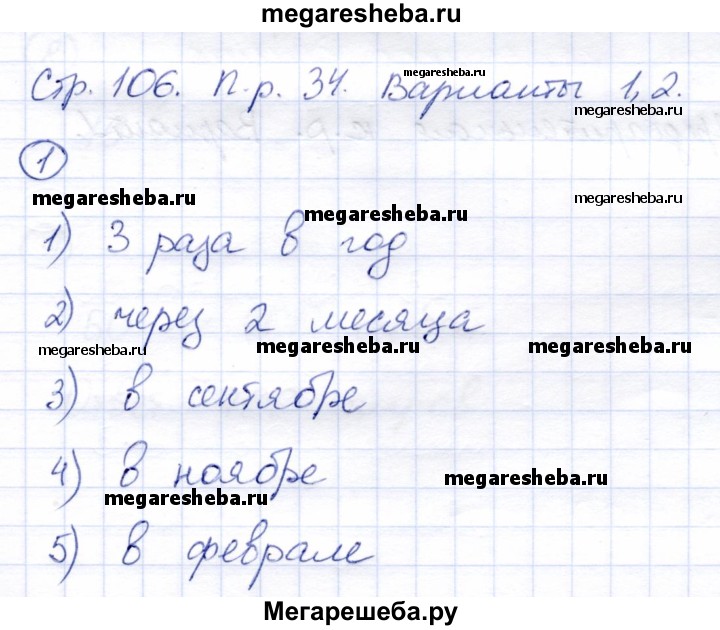 megaresheba.ru
Стр. 106. П.р. 34. Варианты 1, 2.
megaresheba.ru
megaresheba.ru
1
megaresheba.ru
megaresheba.ru
megaresheba.ru
1) 3 раза в год
2) через 2 месяца
megaresheba.ru
megaresheba.ru
megaresheba.ru
3) в сентябре
4) в ноябре
megaresheba.ru
megaresheba.ru
5) в феврале
Мегарешеба.ру